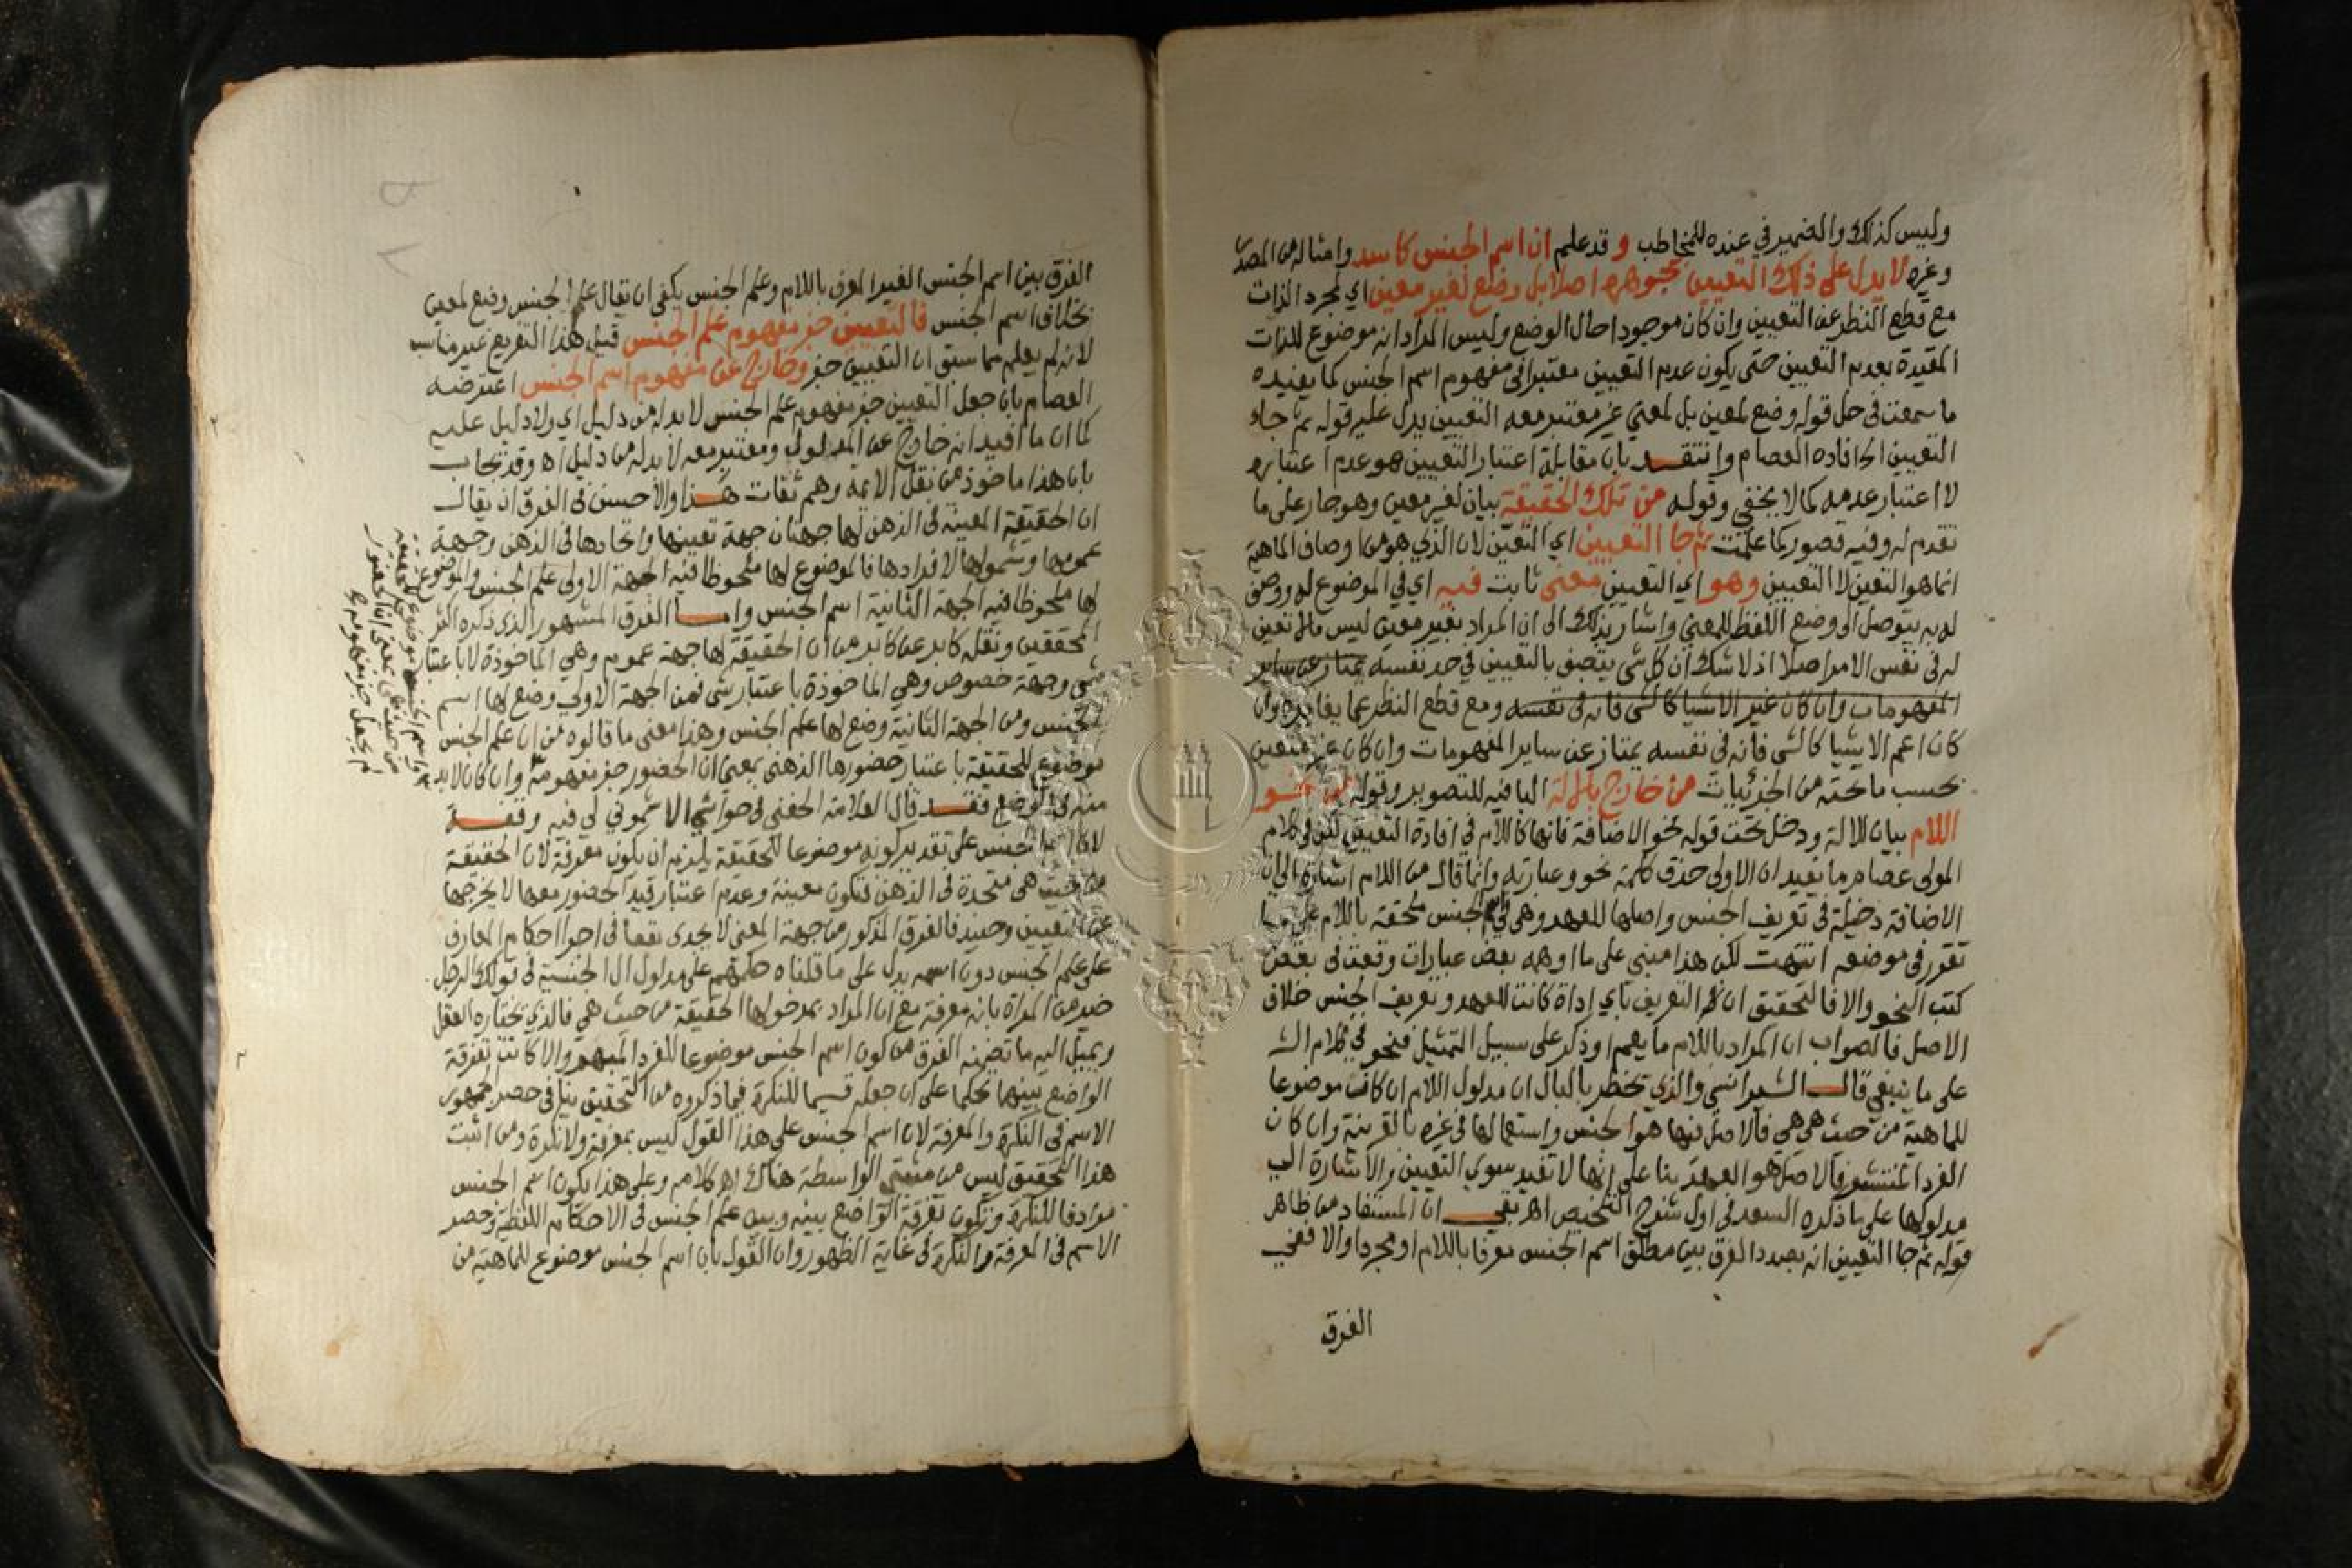 وليس كذلك والضمير في عنده للمخاطب و قد علم ان اسم الجنس كاسد وامثاله من المصدر
وغيره لا يدل على ذلك التعيين بجوهره اصلا بل وضع لغير معين اي لمجرد الذات
مع قطع النظر عن التعيين وان كان موجودا حال الوضع وليس المراد انه موضوع للذات
المقيدة بعدم التعيين حتى يكون عدم التعيين معتبرا في مفهوم اسم الجنس كما يفيده
ما سمعت في حل قوله وضع لمعين بل لمعنى غير معتبر معه التعيين يدل عليه قوله ثم جاء
التعيين الخ افاده العصام وانتقد بان مقابلة اعتبار التعيين هو عدم اعتباره
لا اعتبار عدمه كما لا يخفى وقوله من تلك الحقيقة بيان لغير معين وهو جار على ما
تقدم له وفيه قصور كما علمت ثم جا التعيين اي التعين لان الذي هو من اوصاف الماهية
انما هو التعين لا التعيين وهو اي التعيين معنى ثابت فيه اي في الموضوع له ووصف
له به يتوصل الى وضع اللفظ للمعنى واشار بذلك الى ان المراد بغير معين ليس مالا تعين
له في نفس الامر اصلا اذ لا شك ان كل شي يتصف بالتعيين في حد نفسه يمتاز عن ساير
المفهومات وان كان غير الاشيا كالشي فانه في نفسه ومع قطع النظر عما يغايره وان
كان اعم الاشيا كالشي فانه في نفسه يمتاز عن ساير المفهومات وان كان غير متعين
بحسب ما تحته من الجزئيات من خارج بالالة البا فيه للتصوير وقوله من نحو
اللام بيان للالة ودخل تحت قوله نحو الاضافة فانها كاللام في افادة التعيين لكن في كلام
المولى عصام ما يفيد ان الاولى حذف كلمة نحو وعبارته وانما قال من اللام اشارة الى ان
الاضافة دخيلة في تعريف الجنس واصلها للعهد وهي في الجنس ملحقة باللام على ما
تقرر في موضعه انتهت لكن هذا مبني على ما اوهمه بعض عبارات وقعت في بعض
كتب النحو والا فالتحقيق ان التعريف باي اداة كانت للعهد وتعريف الجنس خلاف
الاصل فالصواب ان المراد باللام ما يعم او ذكر على سبيل التمثيل فنحو في كلام الش
على ما ينبغي قال الشبرانسي والذي يخطر بالبال ان مدلول اللام ان كان موضوعا
للماهية من حيث هي هي فالاصل فيها هو الجنس واستعمالها في غيره بالقرينة وان كان
الفرد المنتشر فالاصل هو العهد بنا على انها لا تفيد سوى التعيين والاشارة الى
مدلولها على ما ذكره السعد في اول شرح التلخيص اهـ بقي ان المستفاد من ظاهر
قوله ثم جا التعيين انه بصدد الفرق بين مطلق اسم الجنس معرفا باللام او مجردا والا ففي
الفرق
الفرق بين اسم الجنس الغير المعرف باللام وعلم الجنس يكفي ان يقال علم الجنس وضع لمعين
بخلاف اسم الجنس فالتعيين جز مفهوم علم الجنس قيل هذا التفريع غير مناسب
لانه لم يعلم مما سبق ان التعيين جز وخارج عن مفهوم اسم الجنس اعترضه
العصام بان جعل التعيين جز مفهوم علم الجنس لا بد له من دليل اي ولا دليل عليه
كما ان ما افيد انه خارج عن المدلول ومعتبر معه لا بد له من دليل اهـ وقد يجاب
بان هذا ماخوذ من نقل الايمة وهم ثقات هذا والاحسن في الفرق ان يقال
ان الحقيقة المعينة في الذهن لها جهتان جهة تعينها واتحادها في الذهن وجهة
عمومها وشمولها لافرادها فالموضوع لها ملحوظا فيه الجهة الاولى علم الجنس والموضوع
لها ملحوظا فيه الجهة الثانية اسم الجنس واما الفرق المشهور الذي ذكره اكثر
المحققين ونقله كابر عن كابر من ان الحقيقة لها جهة عموم وهي الماخوذة لا باعتبار
شي وجهة خصوص وهي الماخوذة باعتبار شي فمن الجهة الاولى وضع لها اسم
الجنس ومن الجهة الثانية وضع لها علم الجنس وهذا معنى ما قالوه من ان علم الجنس
موضوع للحقيقة باعتبار حضورها الذهني بمعنى ان الحضور جز مفهومه وان كان لا بد
منه في الوضع فقد قال العلامة الحفني في حواشي الاشموني لي فيه وقفة
لان اسم الجنس على تقدير كونه موضوعا للحقيقة يلزم ان يكون معرفة لان الحقيقة
من حيث هي متحدة في الذهن فتكون معينة وعدم اعتبار قيد الحضور معها لا يخرجها
عن التعيين وحينئذ فالفرق المذكور من جهة المعنى لا يجدي نفعا في اجرا احكام المعارف
على علم الجنس دون اسمه يدل على ما قلناه حكمهم على مدلول ال الجنسية في قولك الرجل
خير من المراة بانه معرفة مع ان المراد بمدخولها الحقيقة من حيث هي فالذي يختاره العقل
ويميل اليه ما تضمنه الفرق من كون اسم الجنس موضوعا للفرد المبهم والا كانت تفرقة
الواضع بينهما تحكما على ان جعله قسيما للنكرة فيما ذكروه من التحقيق ينافي حصر جمهور
الاسم في النكرة والمعرفة لان اسم الجنس على هذا القول ليس بمعرفة ولا نكرة ومن اثبت
هذا التحقيق ليس من مثبتي الواسطة هناك اهـ كلامه وعلى هذا يكون اسم الجنس
مرادفا للنكرة وتكون تفرقة الواضع بينه وبين علم الجنس في الاحكام اللفظية وحصر
الاسم في المعرفة والنكرة في غاية الظهور وان القول بان اسم الجنس موضوع للماهية من
واسم الجنس موضوع للحقيقة
من حيث هي بمعنى ان الحضور
لم يجعل جز مفهومه